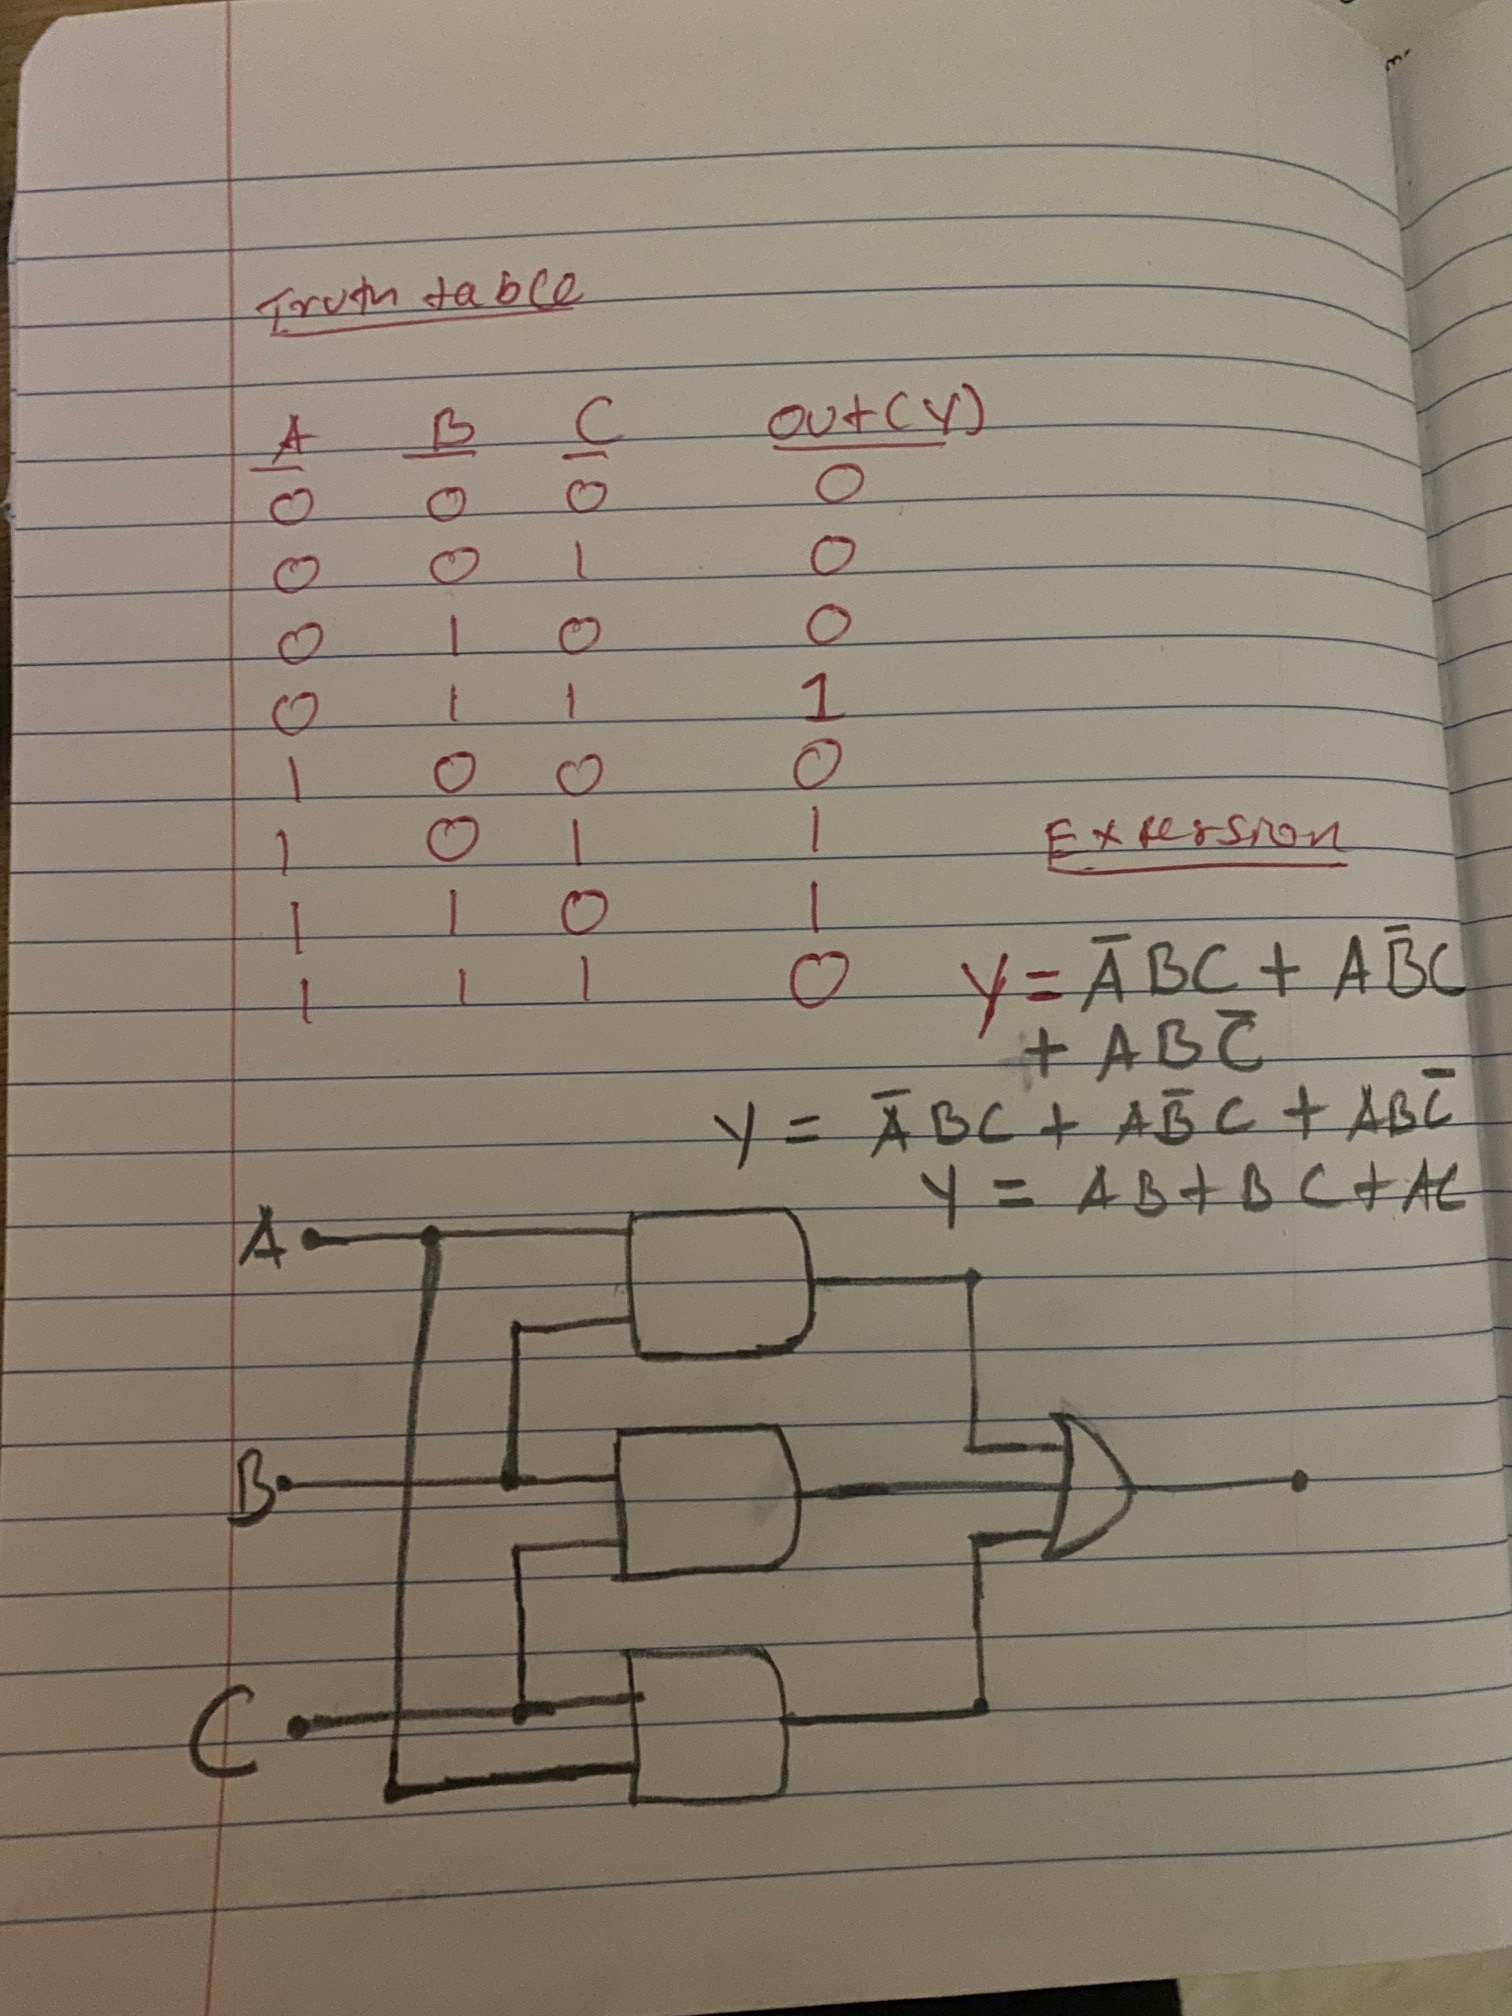 Truth table
A B C out(Y)
0 0 0 0
0 0 1 0
0 1 0 0
0 1 1 1
1 0 0 0
1 0 1 1
1 1 0 1
1 1 1 0
Exression
Y = A̅BC + AB̅C
+ ABC̅
Y = A̅BC + AB̅C + ABC̅
Y = AB + BC + AC
A
B
C